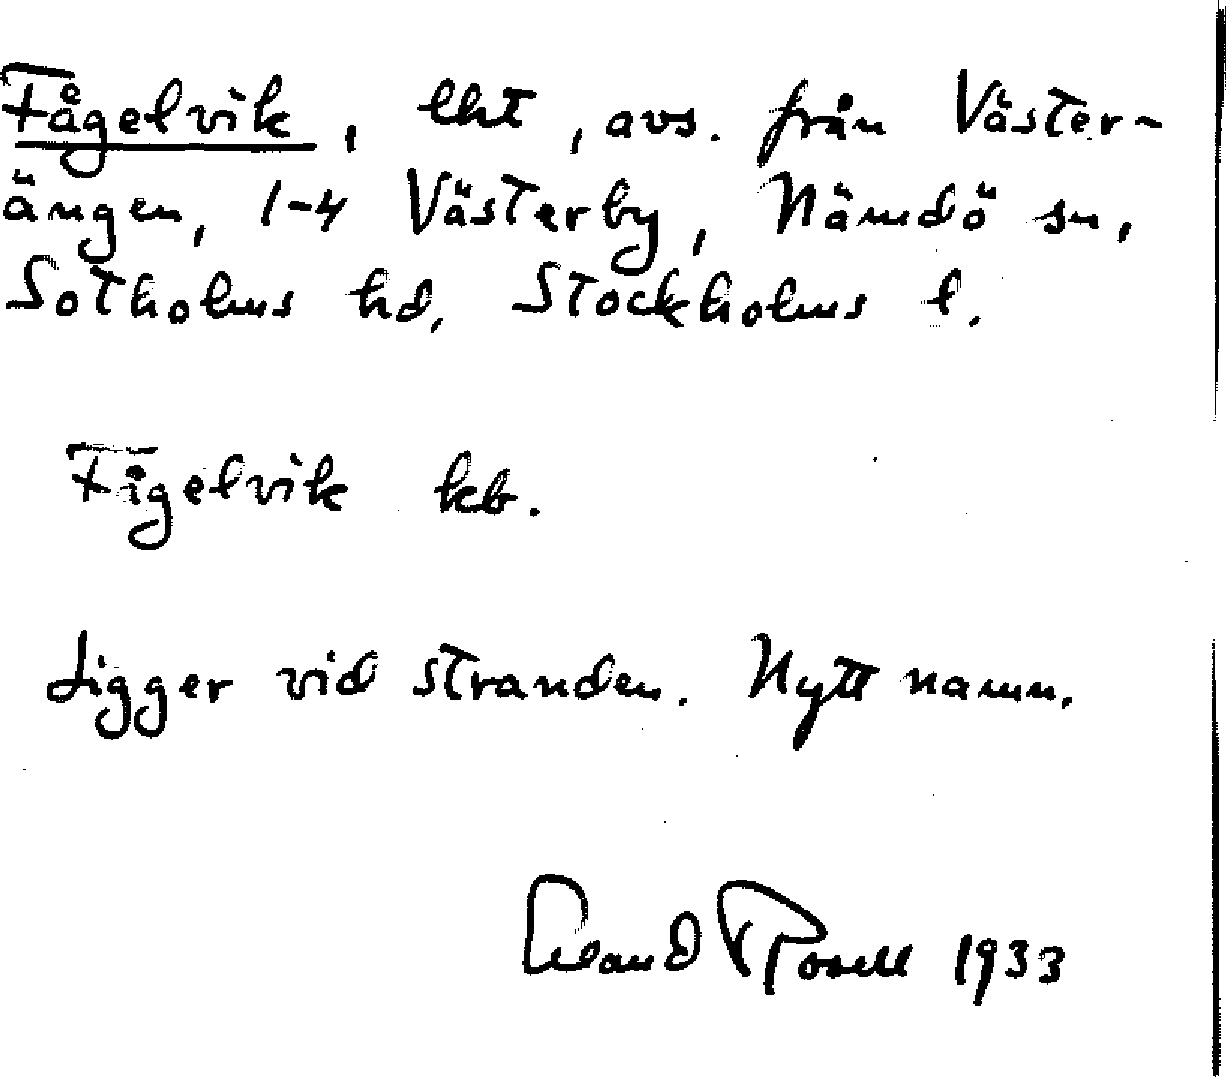 Fågelvik, lht, avs. från Väster-
ängen, 1-4 Västerby, Nämdö sn,
Sotholms hd, Stockholms l.
Fågelvik kb.
Ligger vid stranden. Nytt namn.
1933